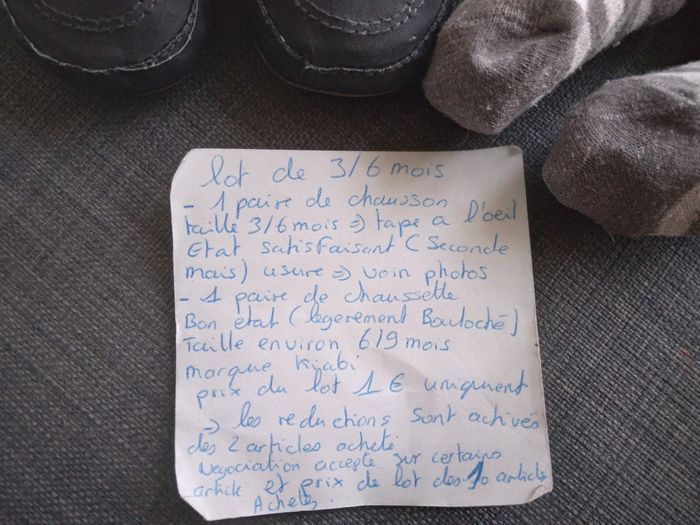 lot de 3/6 mois
- 1 paire de chausson
taille 3/6 mois => tape a l'oeil
Etat satisfaisant (Seconde
mais) usure => voir photos
- 1 paire de chaussette
Bon etat (légerement Bouloché)
Taille environ 6/9 mois
marque Kiabi
prix du lot 1 € uniquent
=> les reductions sont activés
des 2 articles acheté.
Negociation accepte sur certains
article et prix de lot des 10 articles
Achetés.